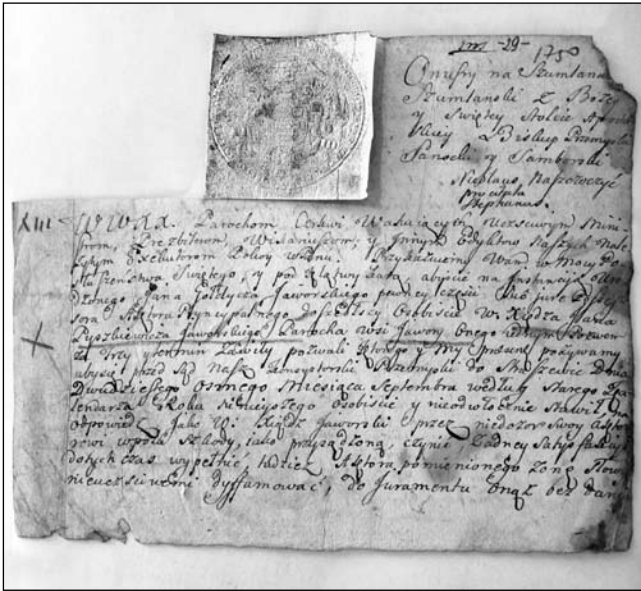 -29- 1750
Onufry na Szumlanach
Szumlanski z Bożey
y Swiętey Stolice Aposto
Biskup Przemyski
Sanocki y Samborski
Stephanus
XIII WWXX. Parochom Cerkwi Wakuiących, Uczciwym Mini-
strom, Prezbiterom, Witanusżom, y Innym Edyktow Naszych Nale-
żytym Exekutorom Pokoy w Panu. Przykazuiemy Wam w Mocy Po-
słuszenstwa Swiętego, y pod klątwy Latą abyscie na Instancyą Uro-
dzonego Jana Jaworskiego pewney części Wsi jure
sora Aktora Pryncypalnego doszedłszy Osobiscie W. Xiędza
Pyszkiewicza Jaworskiego Parocha wsi Jawory Onego iednym Pozwem
za Trzy termin Zawity pozwali ktorego y My pozywamy
abysie przed Sąd Nasz Konsystorski Przemyski do Straszewic Dnia
Dwudziestego Osmego Miesiąca Septembra według Starego Ka-
lendarza Roku ninieyszego Osobiscie y nieodwłocznie Stawił na
odpowiedz Jako W. Xiądz Jaworski przez niedozor Swoy Akto-
rowi w polu Szkody, iako przysądzoną, czynić, Zadney Satysfakcyi
dotychczas wypełnić tudziesz Aktora pomienionego żonę Słowy
nieuczciwemi dyffamować, do Juramentu Onąż bez dania